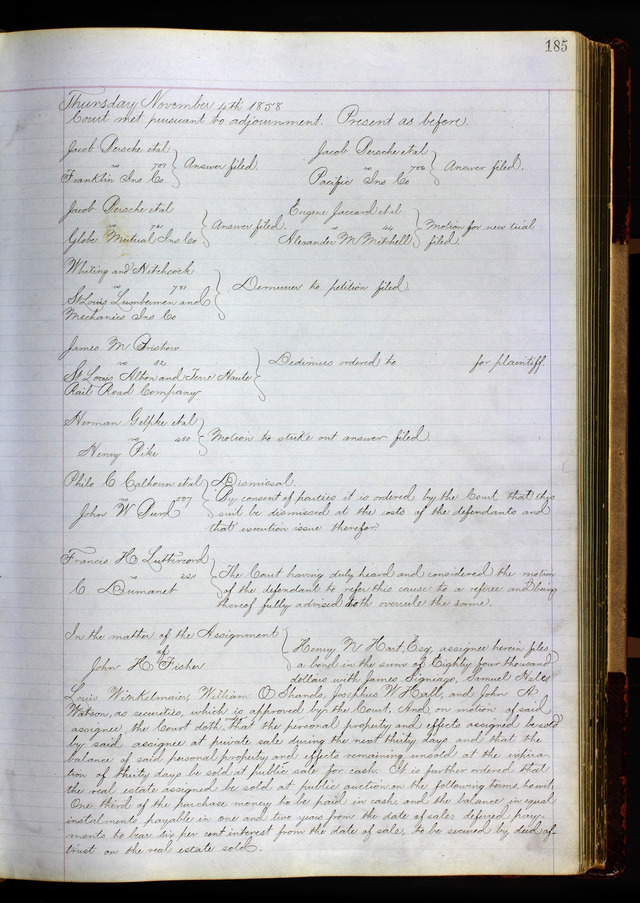 185
Thursday November 4th 1858
Court met pursuant to adjournment. Present as before.
Jacob Persche etal
vs 707 Answer filed.
Franklin Ins Co
Jacob Persche etal
vs 706 Answer filed.
Pacific Ins Co
Jacob Persche etal
vs Answer filed.
Globe Mutual Ins Co
Eugene Jaccard etal
vs 44 Motion for new trial
Alexander M Mitchell filed.
Whiting and Hitchcock
vs 781 Demurrer to petition filed.
St Louis Lumbermen and
Mechanics Ins Co
James M Bristow
vs 52 Dedimus ordered to for plaintiff.
St Louis Alton and Terre Haute
Rail Road Company
Herman Gelpke etal
vs 430 Motion to strike out answer filed.
Henry Pike
Philo C Calhoun etal Dismissal.
vs 507 By consent of parties it is ordered by the Court that this
John W Purd suit be dismissed at the costs of the defendants and
that execution issue therefor.
Francis H Luttercord
vs 221 The Court having duly heard and considered the motion
C Dumanet of the defendant to refer this cause to a referee and being
thereof fully advised doth overrule the same.
In the matter of the Assignment
of
John H Fisher
Henry N Hart, Esq, assignee herein files
a bond in the sum of Eighty four thousand
dollars with James Signaigo, Samuel Hale
Louis Winkelmaier, William O Shands, Josephus W Hall, and John A
Watson, as securities, which is approved by the Court. And, on motion of said
assignee, the Court doth, that the personal property and effects assigned be sold
by said assignee at private sale during the next thirty days and that the
balance of said personal property and effects remaining unsold at the expira-
tion of thirty days be sold at public sale for cash. It is further ordered that
the real estate assigned be sold at public auction, on the following terms, to wit:
One third of the purchase money to be paid in cash, and the balance in equal
instalments payable in one and two years from the date of sale: deferred pay-
ments to bear six per cent interest from the date of sale, to be secured by deed of
trust on the real estate sold.